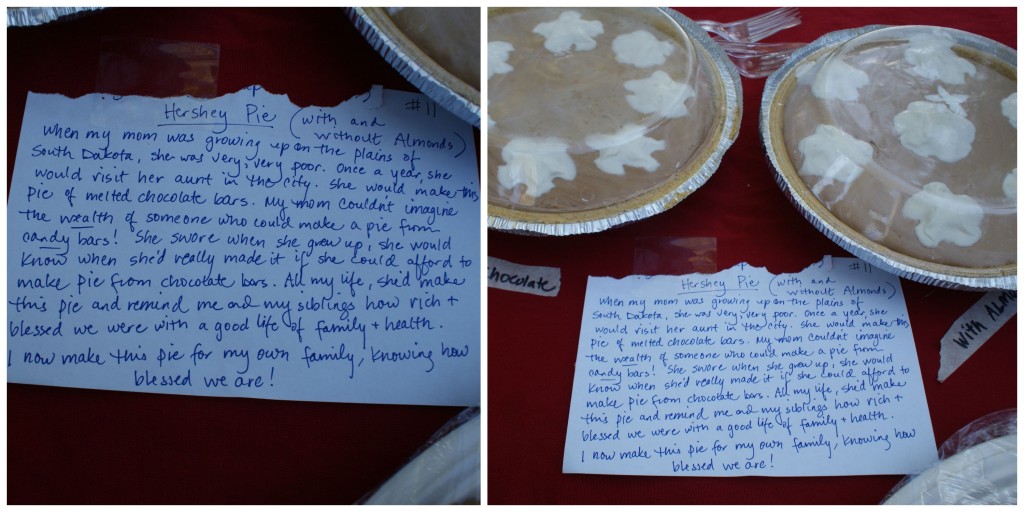 #11
Hershey Pie (with and
without Almonds)
When my mom was growing up on the plains of
South Dakota, she was very, very poor. Once a year, she
would visit her aunt in the city. She would make this
pie of melted chocolate bars. My mom couldn't imagine
the wealth of someone who could make a pie from
candy bars! She swore when she grew up, she would
know when she'd really made it if she could afford to
make pie from chocolate bars. All my life, she'd make
this pie and remind me and my siblings how rich +
blessed we were with a good life of family + health.
I now make this pie for my own family, knowing how
blessed we are!
chocolate
with ALM
#11
Hershey Pie (with and
without Almonds)
When my mom was growing up on the plains of
South Dakota, she was very, very poor. Once a year, she
would visit her aunt in the city. She would make this
pie of melted chocolate bars. My mom couldn't imagine
the wealth of someone who could make a pie from
candy bars! She swore when she grew up, she would
know when she'd really made it if she could afford to
make pie from chocolate bars. All my life, she'd make
this pie and remind me and my siblings how rich +
blessed we were with a good life of family + health.
I now make this pie for my own family, knowing how
blessed we are!